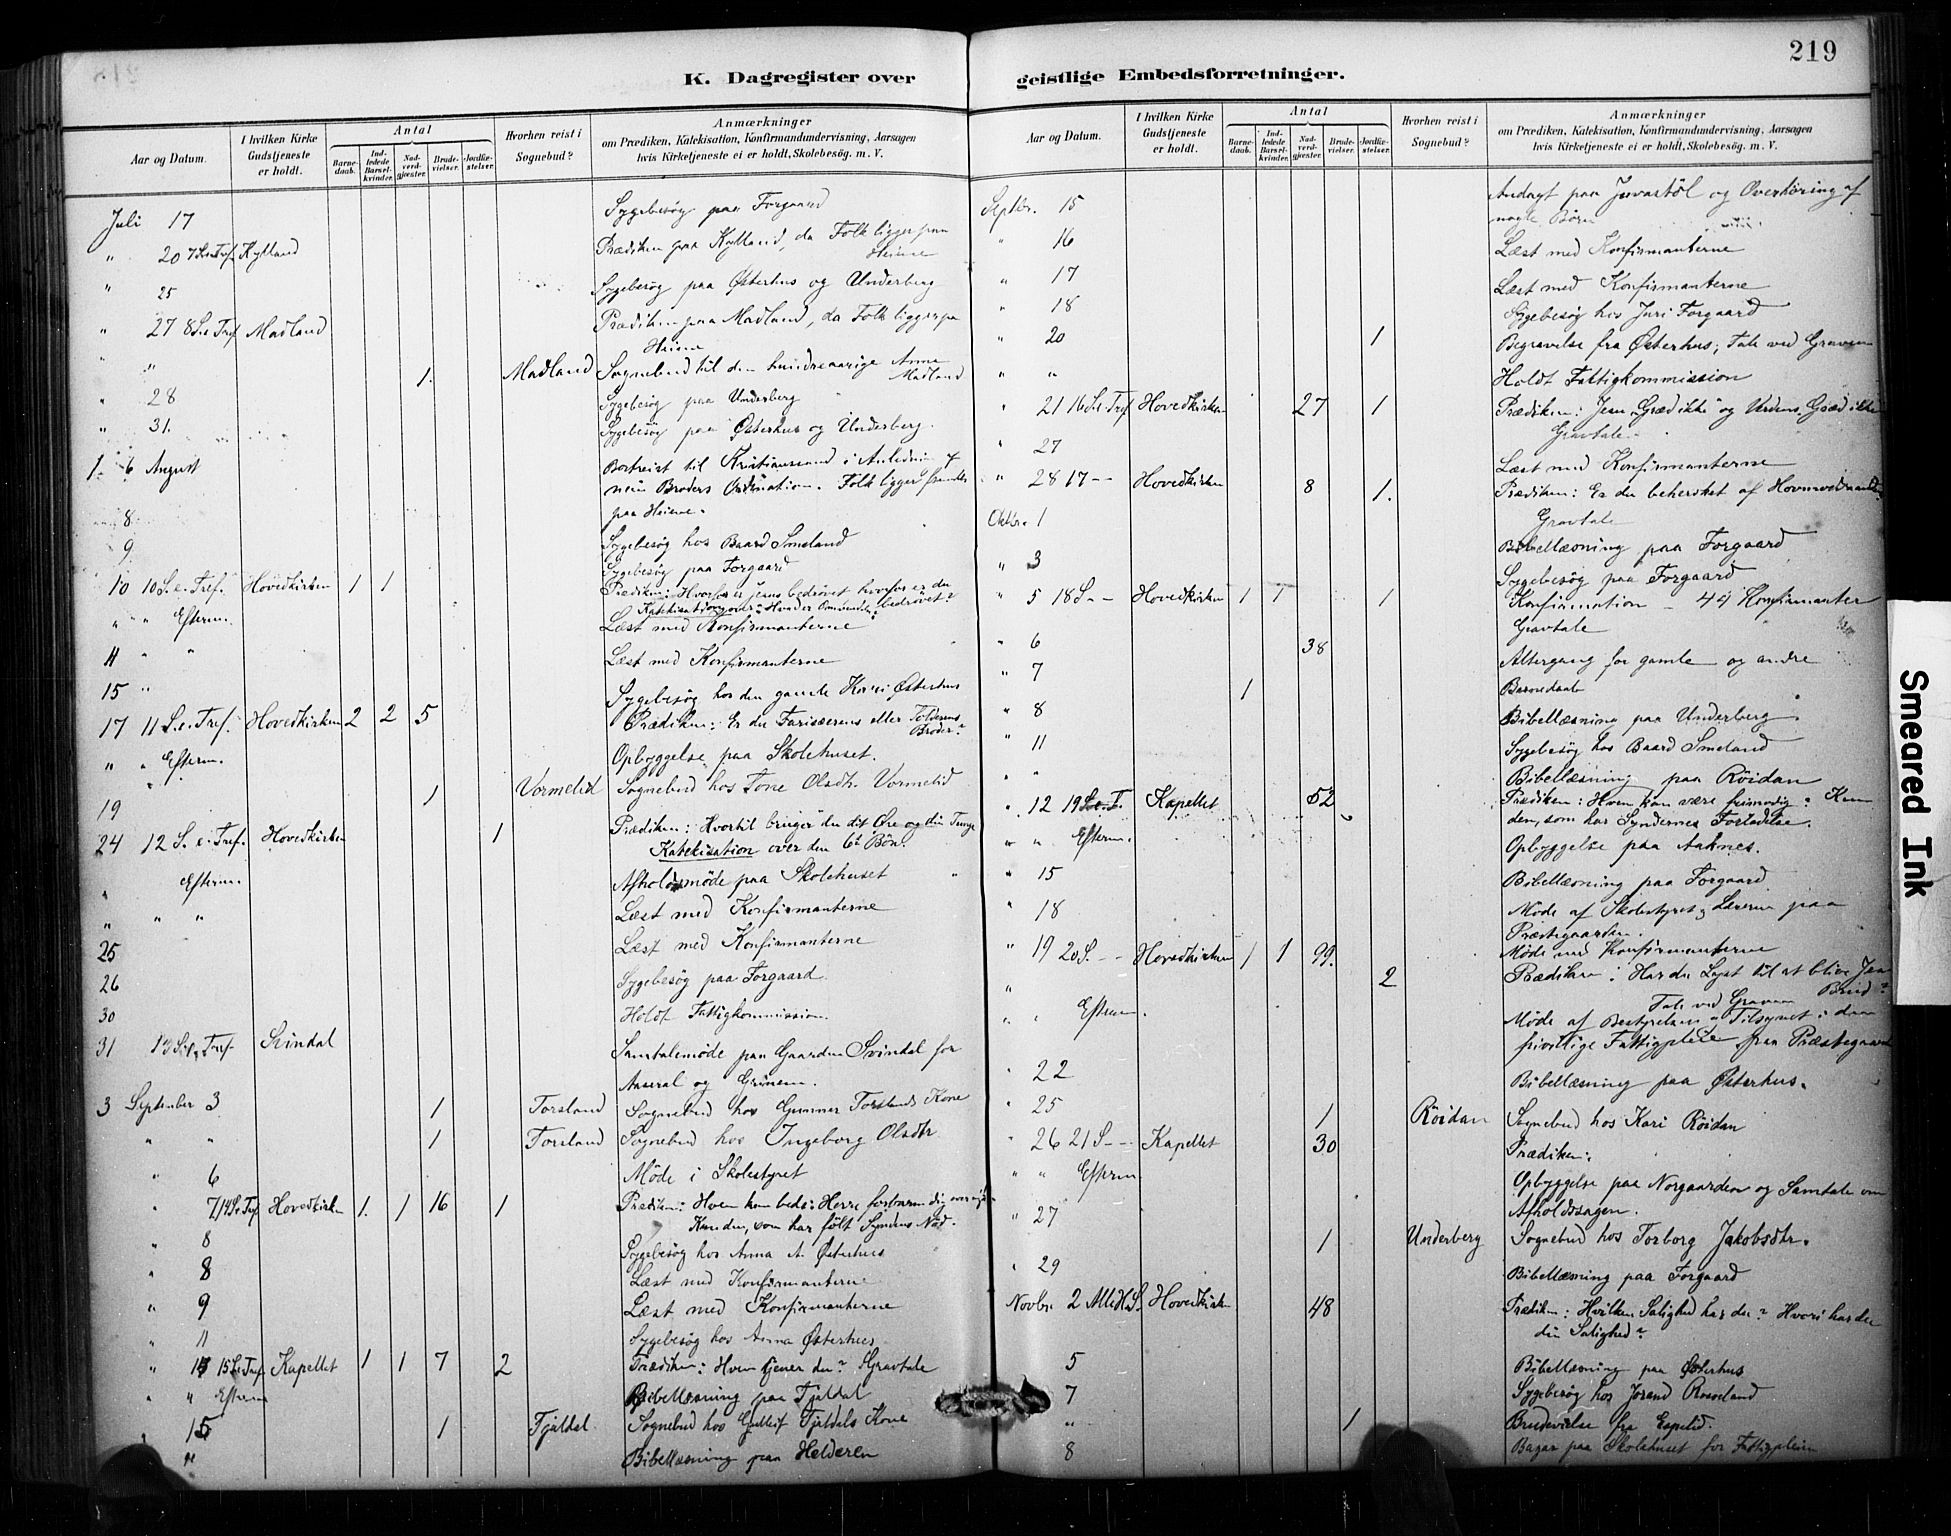 219
K. Dagregister over
geistlige Embedsforretninger.
Aar og Datum.
I hvilken Kirke Gudstjeneste er holdt.
Antal
Barnedaab.
Indledede Barselkvinder.
Nadverdgjæster.
Brudevielser.
Jordfæstelser.
Hvorhen reist i Sognebud?
Anmærkninger
om Prædiken, Katekisation, Konfirmandundervisning, Aarsagen
hvis Kirketjeneste ei er holdt, Skolebesög. m. V.
Juli 17 Sygebesøg paa Forgaard
" 20 7 S.e. Tref. Kylland Prædiken paa Kylland, da Folk ligger paa
Heiene
" 25 Sygebesøg paa Østerhus og Underberg
" 27 8 S.e. Tref. Madland Prædiken paa Madland, da Folk ligger pa
Heiene
" " 1. Madland Sognebud til den hundreaarige Anne
Madland
" 28 Sygebesøg paa Underberg
" 31. Sygebesøg paa Østerhus og Underberg.
1. 6 August Bortreist til Kristianssand i Anledning af
min Broders Ordination. Folk ligger fremdeles
paa Heiene.
8 Sygebesøg hos Baard Smeland
9 Sygebesøg paa Forgaard
10 10 S.e. Tref. Hovedkirken 1 1 Prædiken: Hvorfor er Jesus bedrøvet hvorfor er du
bedrøvet?
Katekisation over
" " Efterm. Læst med Konfirmanterne
11 " " Læst med Konfirmanterne
15 " Sygebesøg hos den gamle Kari Østerhus
17 11 S.e. Tref. Hovedkirken 2 2 5 Prædiken: Er du Farisæerens eller Tolderens
Broder?
" " Efterm. Opbyggelse paa Skolehuset.
19 1 Vormelid Sognebud hos Tone Olsdtr. Vormelid
24 12 S. e. Tref. Hovedkirken 1 Prædiken: Hvortil bruger du dit Øre og din Tunge
Katekisation over den 6te Bøn.
" Efterm. Afholdsmøde paa Skolehuset
" " " Læst med Konfirmanterne
25 Læst med Konfirmanterne
26 Sygebesøg paa Forgaard
30 Holdt Fattigkommission.
31 13 S.e. Tref. Svindal Samtalemøde paa Gaarden Svindal for
Aaseral og
3 September 3 1 Torsland Sognebud hos Gunner Torslands Kone
" " 1 Torsland Sognebud hos Ingeborg Olsdtr
" 6 Møde i Skolestyret
" 7 14 S.e. Tref. Hovedkirken 1. 1 16 1 Prædiken: Hvem kan bede: Herre forbarm dig over mig?
Kun den, som har følt Syndens Nød.
" 8 Sygebesøg hos Anna A. Østerhus
" 8 Læst med Konfirmanterne
" 9 Læst med Konfirmanterne
" 11 Sygebesøg hos Anna Østerhus
" 14 15 S.e. Tref. Kapellet 1 1 7 2 Prædiken: Hvem tjener du? Gravtale
" " Efterm Bibellæsning paa Fjaldal
" 15 1 Fjaldal Sognebud hos Gulleif Fjaldals Kone
" Bibellæsning paa Helderen
Aar og Datum.
I hvilken Kirke Gudstjeneste er holdt.
Antal
Barnedaab.
Indledede Barselkvinder.
Nadverdgjæster.
Brudevielser.
Jordfæstelser.
Hvorhen reist i Sognebud?
Anmærkninger
om Prædiken, Katekisation, Konfirmandundervisning, Aarsagen
hvis Kirketjeneste ei er holdt, Skolebesög. m. V.
Septbr. 15 Andagt paa Juvastøl og Overhøring af
nogle Børn
" 16 Læst med Konfirmanterne
" 17 Læst med Konfirmanterne
" 18 Sygebesøg hos Juri Forgaard
" 20 1 Begravelse fra Østerhus; Tale ved Graven
" " Holdt Fattigkommission
" 21 16 S.e. Tref Hovedkirken 27 1 Prædiken: Jesu "Græd ikke" og Verdens "Græd ikke
Gravtale
" 27 Læst med Konfirmanterne
" 28 17 - - Hovedkirken 8 1. Prædiken: Er du behersket af
Gravtale
Oktbr. 1 Bibellæsning paa Forgaard
" 3 Sygebesøg paa Forgaard
" 5 18 S - - Hovedkirken 1 1 1 Konfirmation - 44 Konfirmanter
Gravtale
" 6 38 Altergang for gamle og andre
" 7 1 Barnedaab
" 8 Bibellæsning paa Underberg.
" 11 Sygebesøg hos Baard Smeland
" " Bibellæsning paa Røidan
" 12 19 S.e.T. Kapellet 52 Prædiken: Hvem kan være frimodig? Kun
den, som har Syndernes Forladelse.
" " Efterm. Opbyggelse paa Aaknes.
" 15 Bibellæsning paa Forgaard
" 18 Møde af Skolestyret og Lærerne paa
Præstegaarden.
Møde med Konfirmanterne
" 19 20 S. - - Hovedkirken 1 1 99. 2 Prædiken: Har du Lyst til at blive Jesu
Brud?
Tale ved Graven
" " Efterm. Møde af Bestyrelsen og Tilsynet i den
frivillige Fattigpleie paa Præstegaard
" 22 Bibellæsning paa Østerhus.
" 25 1 Røidan Sognebud hos Kari Røidan
" 26 21 S - - Kapellet 30 Prædiken.
" " Efterm Opbyggelse paa Norgaarden og Samtale om
Afholdssagen.
" 27 1 Underberg Sognebud hos Torborg Jakobsdtr.
" 29 Bibellæsning paa Forgaard
Novbr. 2 Alle H.S. Hovedkirken 48 Prædiken: Hvilken Salighed har du? Hvori har du
din Salighed?
5 Bibellæsning paa Østerhus
7 Sygebesøg hos Jorand Rosseland
" 1 Brudevielse fra Espelid.
8 Bazar paa Skolehuset for Fattigpleien
Smeared Ink